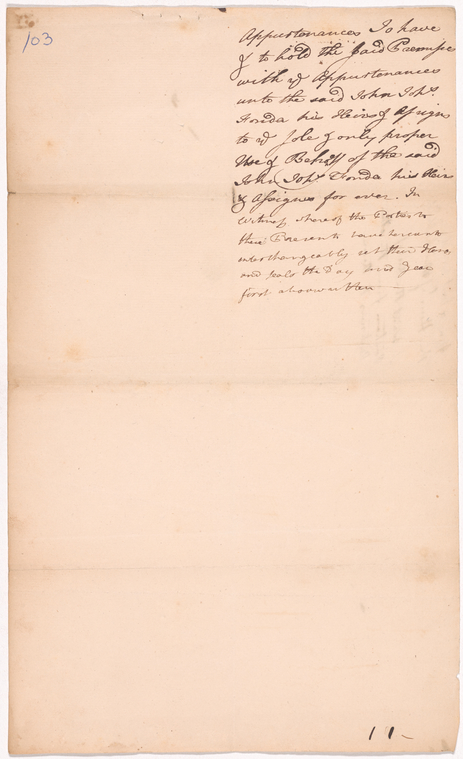 103
Appurtenances To have
& to hold the said Premise
with ye Appurtenances
unto the said John Johs
Fonda his Heirs & Assigns
to ye Sole & only proper
Use & Behoff of the said
John Johs Fonda his Heirs
& Assignes for ever. In
Witness whereof the Parties to
these Presents have hereunto
interchangeably set their Hands
and seals the Day and Year
first above written